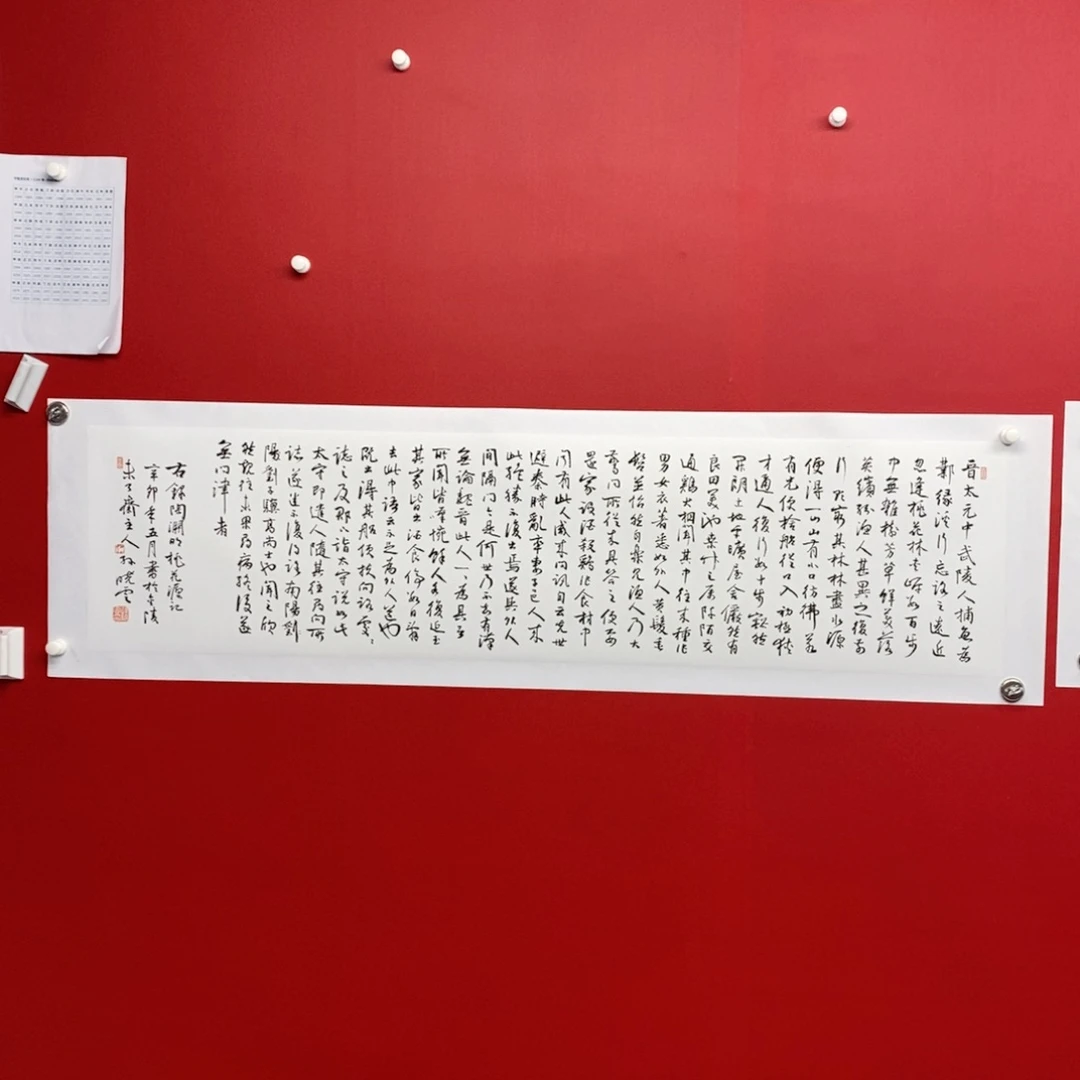 晉太元中武陵人捕魚為
業緣溪行忘路之遠近
忽逢桃花林夾岸數百步
中無雜樹芳草鮮美落
英繽紛漁人甚異之復前
行欲窮其林林盡水源
便得一山山有小口彷彿若
有光便捨船從口入初極狹
才通人復行數十步豁然
開朗土地平曠屋舍儼然有
良田美池桑竹之屬阡陌交
通鷄犬相聞其中往來種作
男女衣著悉如外人黃髮垂
髫並怡然自樂見漁人乃大
驚問所從來具答之便要
還家設酒殺雞作食村中
聞有此人咸來問訊自云先世
避秦時亂率妻子邑人來
此絕境不復出焉遂與外人
間隔問今是何世乃不知有漢
無論魏晉此人一一為具言
所聞皆嘆惋餘人各復延至
其家皆出酒食停數日辭
去此中語云不足為外人道也
既出得其船便扶向路處處
誌之及郡下詣太守說如此
太守即遣人隨其往尋向所
誌遂迷不復得路南陽劉
陽劉子驥高尚士也聞之欣
然規往未果尋病終後遂
無問津者
右錄陶淵明桃花源記
辛卯年五月書於金陵
未了齋主人孫曉雲